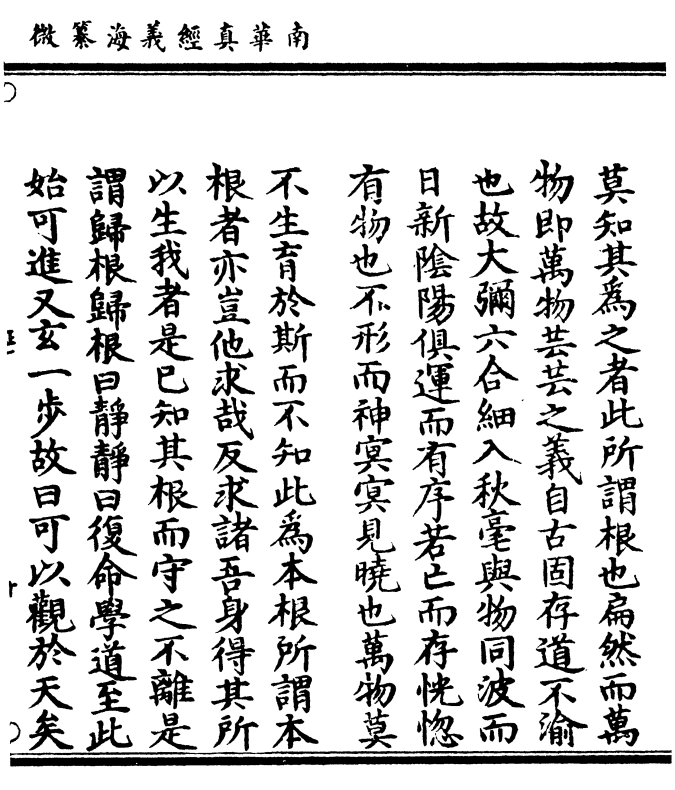 南華真經義海纂微
莫知其爲之者此所謂根也扁然而萬
物即萬物芸芸之義自古固存道不渝
也故大彌六合細入秋毫與物同波而
日新陰陽俱運而有序若亡而存恍惚
有物也不形而神冥冥見曉也萬物莫
不生育於斯而不知此爲本根所謂本
根者亦豈他求哉反求諸吾身得其所
以生我者是已知其根而守之不離是
謂歸根歸根曰靜靜曰復命學道至此
始可進又玄一步故曰可以觀於天矣